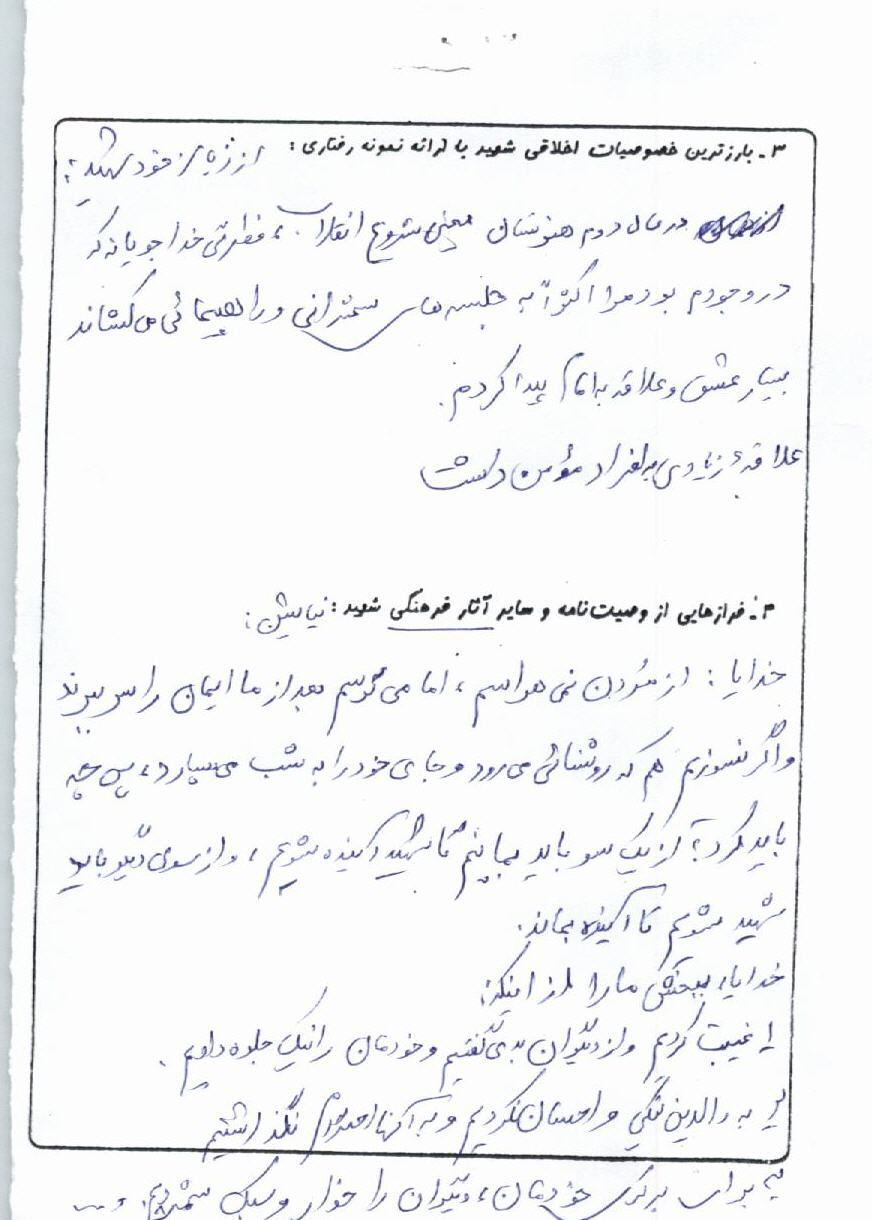 ۳ـ بارزترین خصوصیات اخلاقی شهید با ارائه نمونه رفتاری: از زبان خود شهید:
در سال دوم هنرستان یعنی شروع انقلاب، فطرتی خداجویانه که
در وجودم بود مرا اکثراً به جلسه های سخنرانی و راهپیمائی می کشاند
بسیار عشق و علاقه به امام پیدا کردم.
علاقهٔ زیادی به افراد مؤمن داشت
۴ـ فرازهایی از وصیت نامه و سایر آثار فرهنگی شهید: نیایش:
خدایا: از مُردن نمی هراسم، اما می ترسم بعد از ما ایمان را سر ببرند
و اگر نسوزیم هم که روشنائی می رود و جای خود را به شب می سپارد، پس چه
باید کرد؟ از یک سو باید بمانیم تا شهید آینده شویم، و از سوی دیگر باید
شهید شویم تا آینده بماند.
خدایا، ببخش ما را از اینکه:
۱ـ غیبت کردیم و از دیگران بدی گفتیم و خودمان را نیک جلوه دادیم.
۲ـ به والدین نیکی و احسان نکردیم و به آنها احترام نگذاشتیم
۳ـ برای بزرگی خودمان، دیگران را خوار و سبک شمردیم. و ...